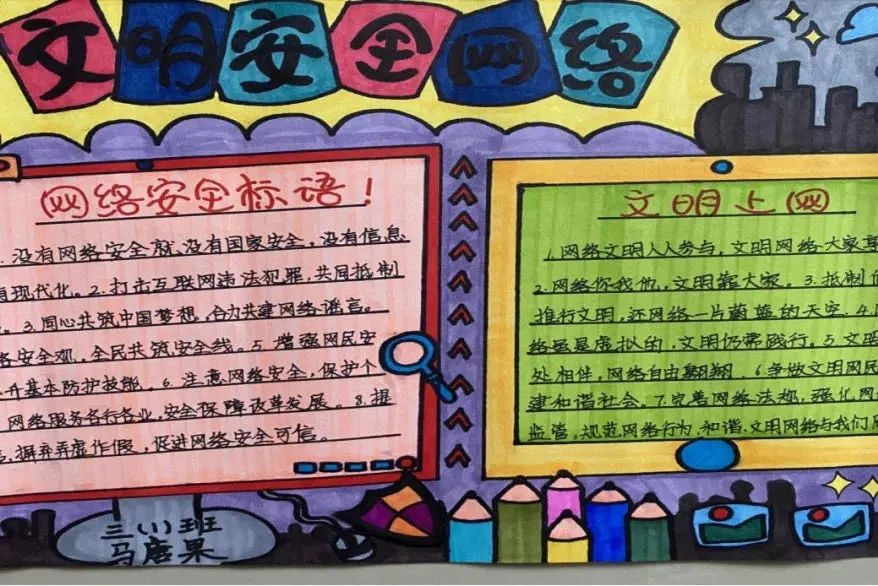 文明安全网络
网络安全标语！
.没有网络安全就没有国家安全，没有信息
现代化。2.打击互联网违法犯罪，共同抵制
。3.同心共筑中国梦想，合力共建网络谣言。
安全观，全民共筑安全线。5.增强网民安
升基本防护技能。6.注意网络安全，保护个
网络服务各行各业，安全保障改革发展。8.提
，摒弃弄虚作假，促进网络安全可信。
文明上网
1.网络文明人人参与，文明网络大家享
2.网络你我他，文明靠大家。3.抵制
推行文明，还网络一片蔚蓝的天空.4.
络虽是虚拟的，文明仍需践行。5.文明
处相伴，网络自由翱翔.6.争做文明网民
建和谐社会。7.完善网络法规，强化网
监管，规范网络行为.和谐.文明网络与我们
三（1）班
马唐果